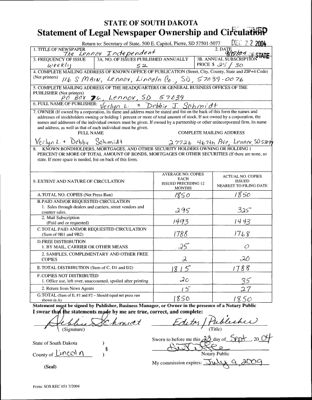 STATE OF SOUTH DAKOTA
Statement of Legal Newspaper Ownership and Circulation
Return to: Secretary of State, 500 E. Capitol, Pierre, SD 57501-5077
1. TITLE OF NEWSPAPER
The Lennox Independent
2. DATE
3. FREQUENCY OF ISSUE
weekly
3A. NO. OF ISSUES PUBLISHED ANNUALLY
52
3B. ANNUAL SUBSCRIPTION PRICE $ 25/30
4. COMPLETE MAILING ADDRESS OF KNOWN OFFICE OF PUBLICATION (Street, City, County, State and ZIP+4 Code)
(Not printers)
116 S Main, Lennox, Lincoln Co, SD, 57039-0076
5. COMPLETE MAILING ADDRESS OF THE HEADQUARTERS OR GENERAL BUSINESS OFFICES OF THE
PUBLISHER (Not printers)
PO Box 76, Lennox, SD 57039
6. FULL NAME OF PUBLISHER
Verlyn L. + Debbie J Schmidt
7. OWNER (If owned by a corporation, its name and address must be stated and also on the back of this form the names and
addresses of stockholders owning or holding 1 percent or more of total amount of stock. If not owned by a corporation, the
names and addresses of the individual owners must be given. If owned by a partnership or other unincorporated firm, its name
and address, as well as that of each individual must be given.
FULL NAME
COMPLETE MAILING ADDRESS
Verlyn L + Debbie Schmidt
46th Ave, Lennox SD 57039
8. KNOWN BONDHOLDERS, MORTGAGES, AND OTHER SECURITY HOLDERS OWNING OR HOLDING 1
PERCENT OR MORE OF TOTAL AMOUNT OF BONDS, MORTGAGES OR OTHER SECURITIES (If there are none, so
state. If more space is needed, list on back of this form.
9. EXTENT AND NATURE OF CIRCULATION
AVERAGE NO. COPIES
EACH
ISSUED PRECEDING 12
MONTHS
ACTUAL NO. COPIES
ISSUED
NEAREST TO FILING DATE
A. TOTAL NO. COPIES (Net Press Run)
1850
1850
B. PAID AND/OR REQUESTED CIRCULATION
1. Sales through dealers and carriers, street vendors and
counter sales.
295
325
2. Mail Subscription
(Paid and or requested)
1493
1443
C. TOTAL PAID AND/OR REQUESTED CIRCULATION
(Sum of 9B1 and 9B2)
1788
1768
D. FREE DISTRIBUTION
1. BY MAIL, CARRIER OR OTHER MEANS
25
0
2. SAMPLES, COMPLIMENTARY AND OTHER FREE
COPIES
2
20
E. TOTAL DISTRIBUTION (Sum of C, D1 and D2)
1815
1788
F. COPIES NOT DISTRIBUTED
1. Office use, left over, unaccounted, spoiled after printing
20
35
2. Return from News Agents
15
27
G. TOTAL (Sum of E, F1 and F2 - Should equal net press run
shown in A)
1850
1850
Statement must be signed by Publisher, Business Manager, or Owner in the presence of a Notary Public
I swear that the statements made by me are true, correct, and complete:
Debbie Schmidt
(Signature)
Editor/Publisher
(Title)
State of South Dakota )
County of Lincoln )
(Seal)
Sworn to before me this 29 day of Sept, 2004
Notary Public
My commission expires: July 9, 2009